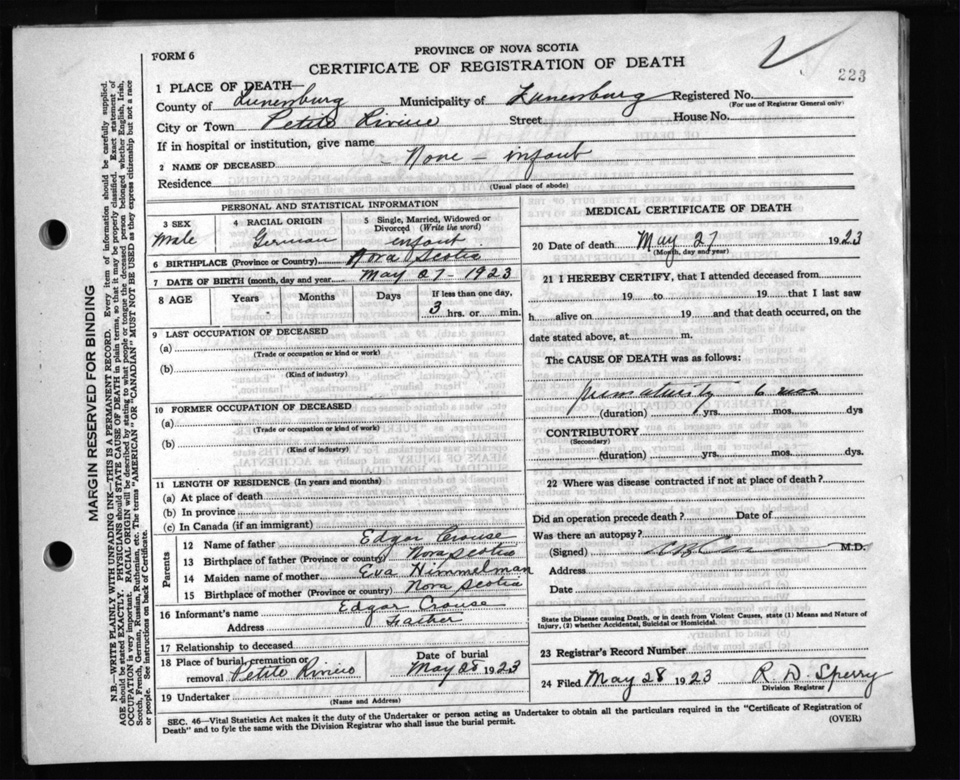 FORM 6
PROVINCE OF NOVA SCOTIA
CERTIFICATE OF REGISTRATION OF DEATH
223
1 PLACE OF DEATH—
County of Lunenburg Municipality of Lunenburg Registered No.
(For use of Registrar General only)
City or Town Petite Riviere Street House No.
If in hospital or institution, give name
2 NAME OF DECEASED None - infant
Residence
(Usual place of abode)
PERSONAL AND STATISTICAL INFORMATION
3 SEX 4 RACIAL ORIGIN 5 Single, Married, Widowed or Divorced (Write the word)
Male German infant
6 BIRTHPLACE (Province or Country) Nova Scotia
7 DATE OF BIRTH (month, day and year) May 27 - 1923
8 AGE Years Months Days If less than one day,
3 hrs. or min.
9 LAST OCCUPATION OF DECEASED
(a)
(Trade or occupation or kind or work)
(b)
(Kind of industry)
10 FORMER OCCUPATION OF DECEASED
(a)
(Trade or occupation or kind of work)
(b)
(Kind of industry)
11 LENGTH OF RESIDENCE (In years and months)
(a) At place of death
(b) In province
(c) In Canada (if an immigrant)
Parents
12 Name of father Edgar Crouse
13 Birthplace of father (Province or country) Nova Scotia
14 Maiden name of mother Eva Himmelman
15 Birthplace of mother (Province or country) Nova Scotia
16 Informant's name Edgar Crouse
Address Father
17 Relationship to deceased
18 Place of burial, cremation or removal Petite Riviere Date of burial May 28 1923
19 Undertaker
(Name and Address)
MEDICAL CERTIFICATE OF DEATH
20 Date of death May 27 1923
(Month, day and year)
21 I HEREBY CERTIFY, that I attended deceased from
19 to 19 that I last saw
h alive on 19 and that death occurred, on the
date stated above, at m.
The CAUSE OF DEATH was as follows:
prematurity 6 mos
(duration) yrs. mos. dys
CONTRIBUTORY
(Secondary)
(duration) yrs. mos. dys.
22 Where was disease contracted if not at place of death?
Did an operation precede death? Date of
Was there an autopsy?
(Signed) M.D.
Address
Date
State the Disease causing Death, or in death from Violent Causes, state (1) Means and Nature of
Injury, (2) whether Accidental, Suicidal or Homicidal.
23 Registrar's Record Number
24 Filed May 28 1923 R. D. Sperry
Division Registrar
SEC. 46—Vital Statistics Act makes it the duty of the Undertaker or person acting as Undertaker to obtain all the particulars required in the "Certificate of Registration of
Death" and to fyle the same with the Division Registrar who shall issue the burial permit.
(OVER)
MARGIN RESERVED FOR BINDING
N.B.—WRITE PLAINLY WITH UNFADING INK—THIS IS A PERMANENT RECORD. Every item of information should be carefully supplied.
AGE should be stated EXACTLY. PHYSICIANS should STATE CAUSE OF DEATH in plain terms, so that it may be properly classified. Exact statement of
OCCUPATION is very important. RACIAL ORIGIN will be described by stating to what people or tongue the deceased person belonged whether English, Irish,
Scotch, French, German, Russian, Ruthenian, etc. The terms "AMERICAN" OR "CANADIAN" MUST NOT BE USED as they express citizenship but not a race
or people. See instructions on back of Certificate.